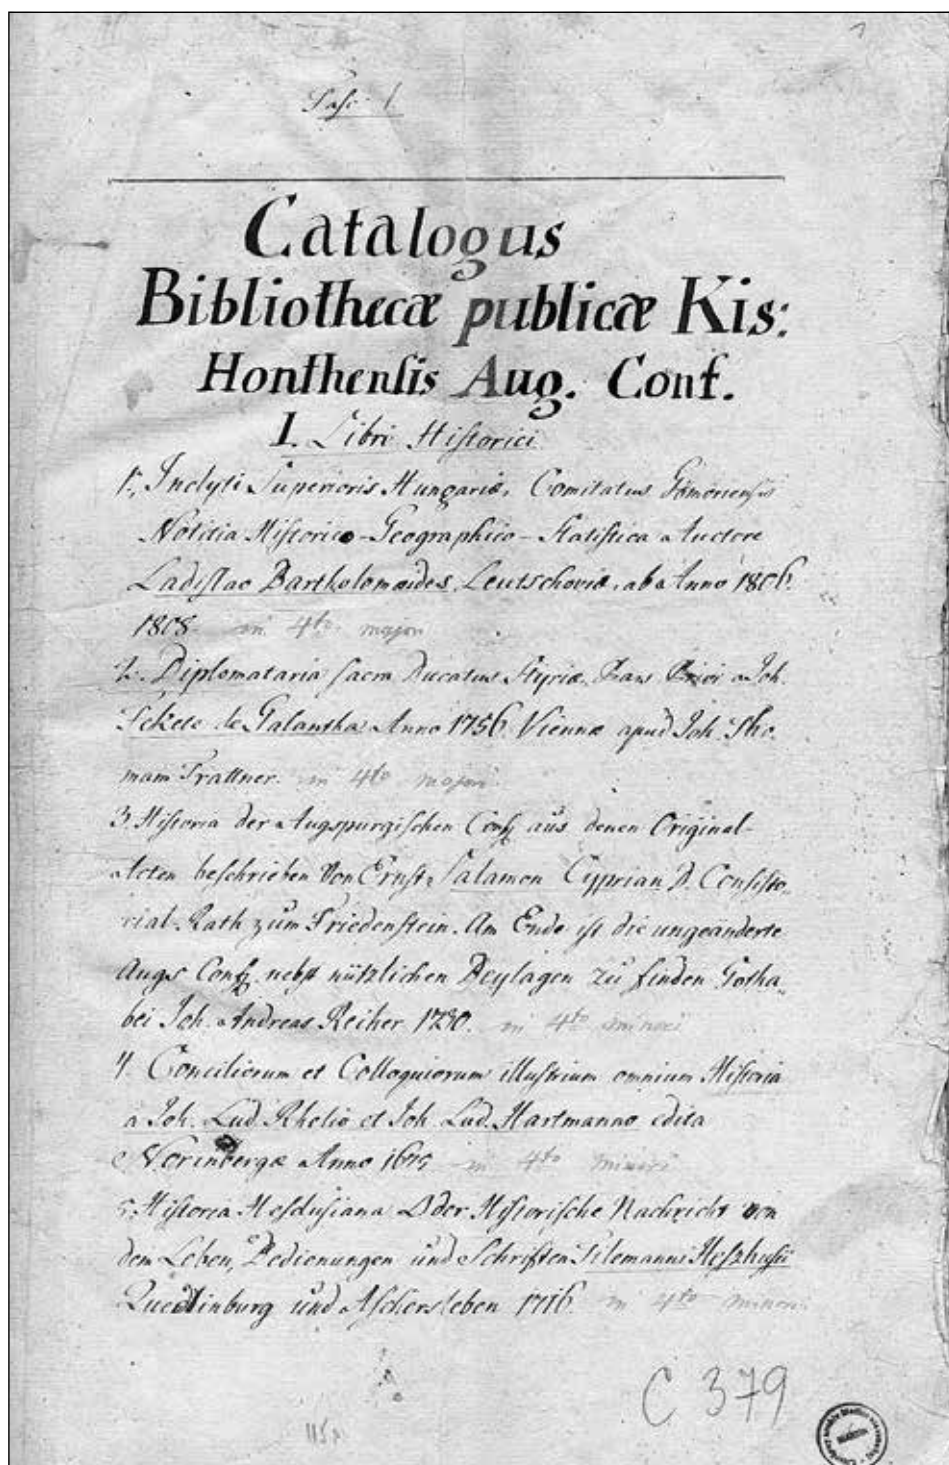 Fasc. I.
1
Catalogus
Bibliothecæ publicæ Kis:
Honthensis Aug. Conf.
I. Libri Historici
1., Inclyti Superioris Hungariæ, Comitatus Gömöriensis
Notitia Historico-Geographico-Statistica Auctore
Ladislao Bartholomæides, Leutschoviæ, ab Anno 1806.
1808. in 4to majori
2. Diplomataria sacra Ducatus Styriæ. Pars Prior a Joh.
de Galantha Anno 1756 Viennæ apud Joh. Tho.
mam Trattner. in 4to majori
3. Historia der Augspurgischen Conf. aus denen Original-
Acten beschrieben von Ernst. Salamon Cyprian D. Consisto,,
rial-Rath zum Friedenstein. Am Ende ist die ungeänderte
Augs Conf. nebst nützlichen Beylagen zu finden Gotha,,
bei Joh. Andreas Reiher 1730. in 4to minori
4. Conciliorum et Colloquiorum illustrium omnium Historia
a Joh. Lud. Rhelio et Joh. Lud. Hartmanno edita
Norinbergæ Anno in 4to minori
5. Historia Heshusiana Oder Historische Nachricht von
dem Leben, Bedienungen und Schriften Tilemanni Heszhusii
Quedlinburg und Aschersleben 1716 in 4to minori
C 379